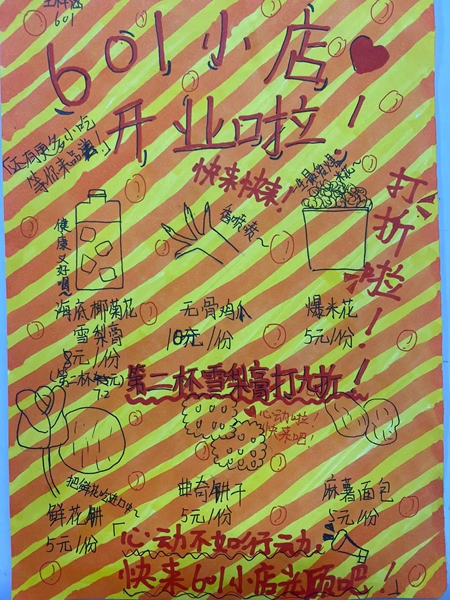 601
601小店
开业啦！
还有更多小吃
等你来品尝！
快来快来！
打折啦！
健康又好喝~
香喷喷~
海底椰菊花
雪梨膏
8元/份
(第二杯
7.2
无骨鸡爪
10元/份
爆米花
5元/份
第二杯雪梨膏打九折！
心动啦！
快来吧！
把鲜花吃进口中
鲜花饼
5元/份
曲奇饼干
5元/份
麻薯面包
5元/份
「心动不如行动，
快来601小店光顾吧！」